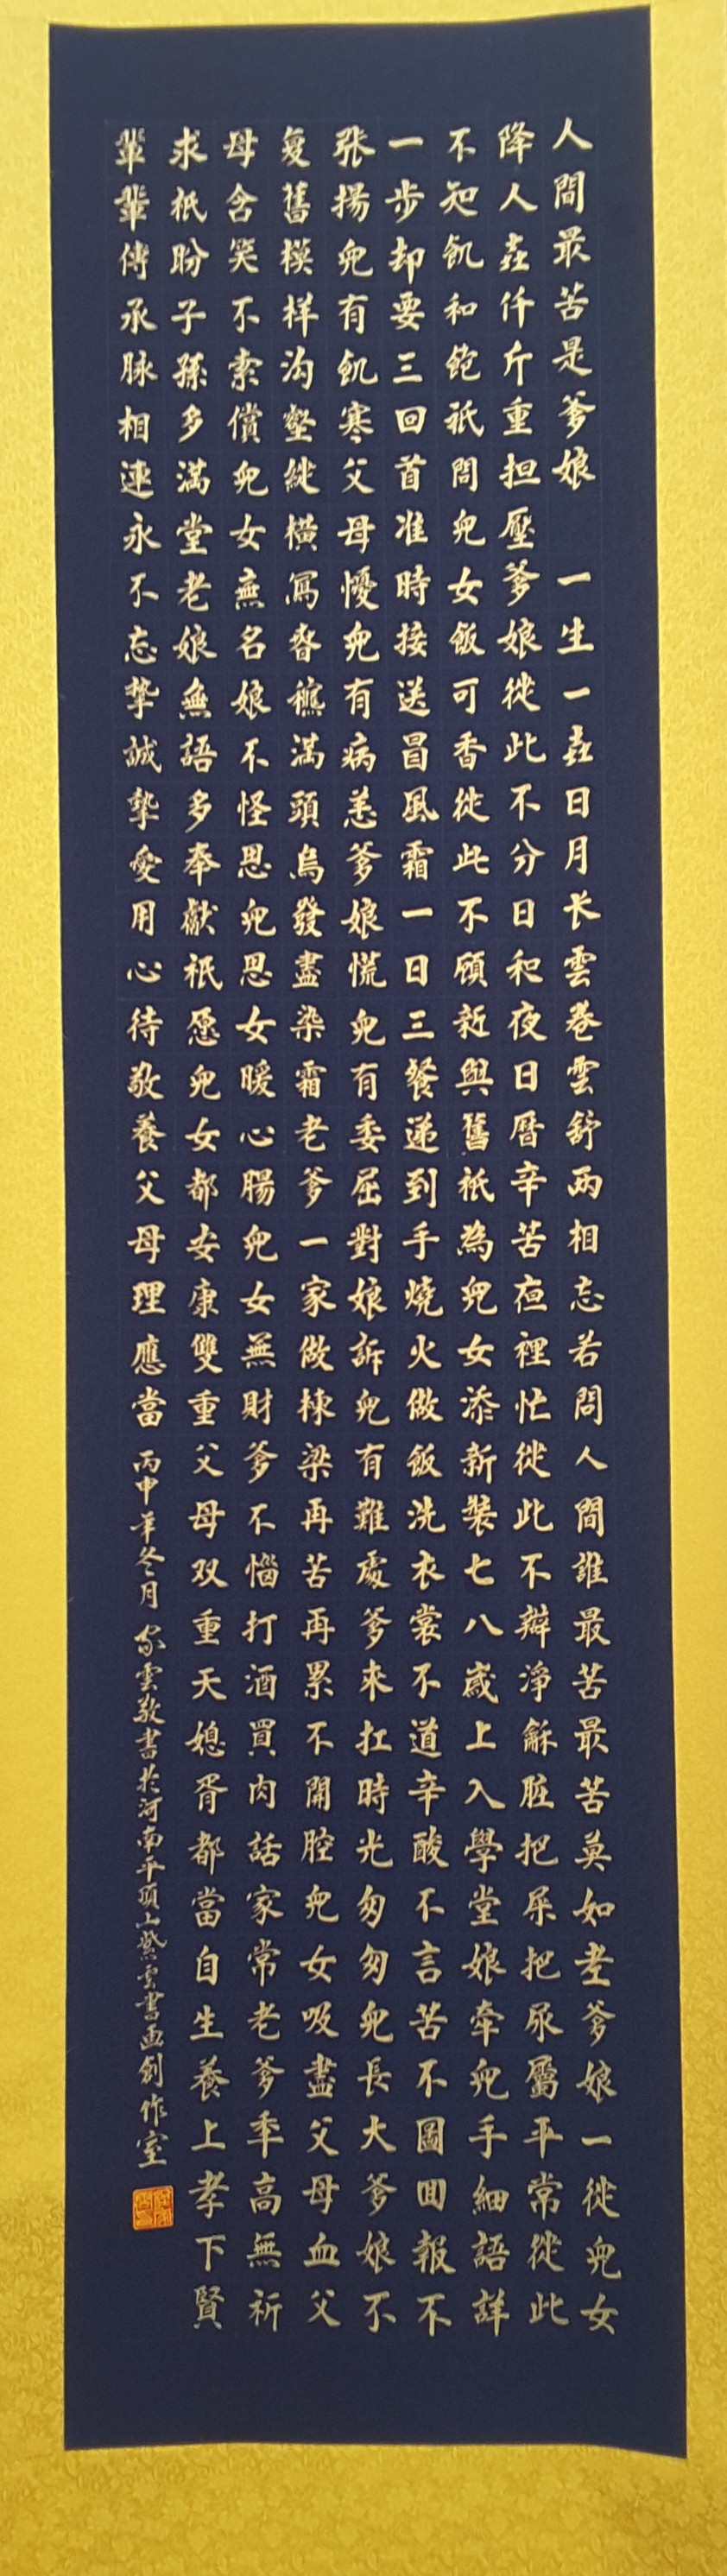 人間最苦是爹娘　一生一世日月长雲卷雲舒兩相忘若問人間誰最苦最苦莫如老爹娘一從兒女
降人世仟斤重担壓爹娘從此不分日和夜日曆辛苦夜裡忙從此不辯淨龢脏把屎把尿屬平常從此
不知飢和飽衹問兒女飯可香從此不顧新與舊衹為兒女添新裝七八歲上入學堂娘牽兒手細語詳
一步却要三回首准時接送冒風霜一日三餐递到手燒火做飯洗衣裳不道辛酸不言苦不圖回報不
张揚兒有飢寒父母憂兒有病恙爹娘慌兒有委屈對娘訴兒有難處爹來扛時光匆匆兒長大爹娘不
复舊模样沟壑縱橫寫滿頭烏發盡染霜老爹一家做棟梁再苦再累不開腔兒女吸盡父母血父
母含笑不索償兒女無名娘不怪思兒思女暖心腸兒女無財爹不惱打酒買肉話家常老爹年高無祈
求衹盼子孫多满堂老娘無語多奉獻衹愿兒女都安康雙重父母双重天媳胥都當自生養上孝下賢
輩輩傳承脉相連永不忘摯誠摯愛用心待敬養父母理應當 丙申年冬月 雲敬書於河南平頂山紫雲書画創作室